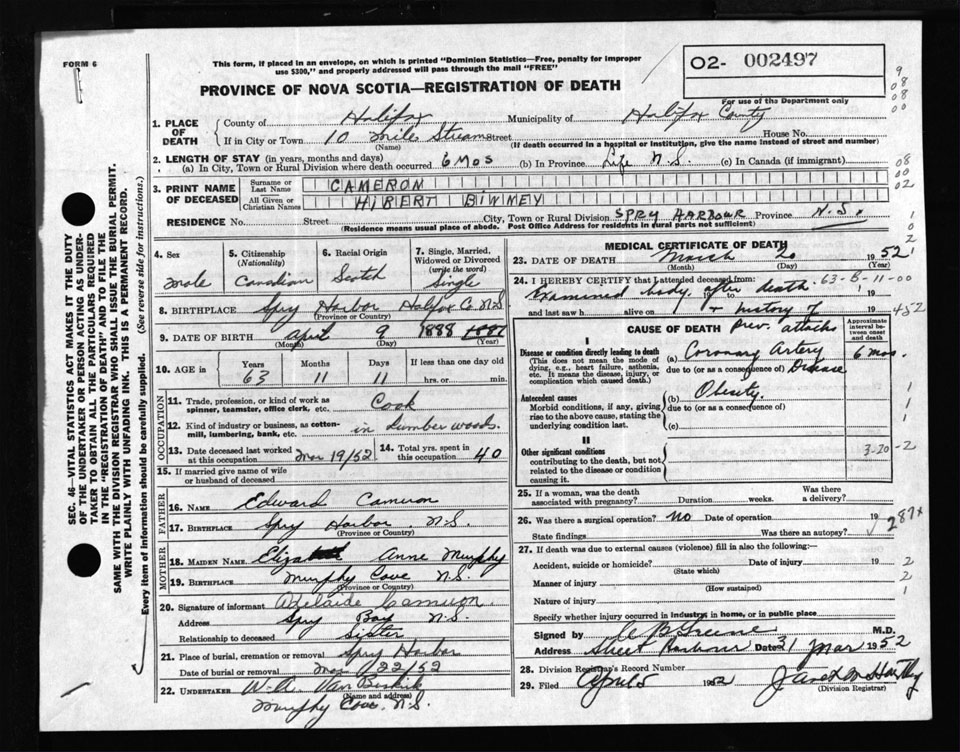 FORM 6
This form, if placed in an envelope, on which is printed "Dominion Statistics—Free, penalty for improper
use $300," and properly addressed will pass through the mail "FREE"
PROVINCE OF NOVA SCOTIA—REGISTRATION OF DEATH
O2- 002497
For use of the Department only
1. PLACE OF DEATH County of Halifax Municipality of Halifax County
If in City or Town 10 Mile Stream Street House No.
(Name) (If death occurred in a hospital or institution, give the name instead of street and number)
2. LENGTH OF STAY (in years, months and days)
(a) In City, Town or Rural Division where death occurred 6 mos (b) In Province Life N.S. (c) In Canada (if immigrant)
3. PRINT NAME OF DECEASED Surname or Last Name CAMERON
All Given or Christian Names HIBERT BINNEY
RESIDENCE No. Street City, Town or Rural Division SPRY HARBOUR Province N.S.
(Residence means usual place of abode. Post Office Address for residents in rural parts not sufficient)
4. Sex Male
5. Citizenship (Nationality) Canadian
6. Racial Origin Scotch
7. Single, Married, Widowed or Divorced (write the word) Single
8. BIRTHPLACE Spry Harbor Halifax Co. N.S
(Province or Country)
9. DATE OF BIRTH April 9 1888 1887
(Month) (Day) (Year)
10. AGE in Years 63 Months 11 Days 11 If less than one day old hrs. or min.
OCCUPATION
11. Trade, profession, or kind of work as spinner, teamster, office clerk, etc. Cook
12. Kind of industry or business, as cotton-mill, lumbering, bank, etc. in Lumber woods.
13. Date deceased last worked at this occupation Mar 19/52 14. Total yrs. spent in this occupation 40
15. If married give name of wife or husband of deceased
FATHER
16. NAME Edward Cameron
17. BIRTHPLACE Spry Harbor N.S.
(Province or Country)
MOTHER
18. MAIDEN NAME Elizabeth Anne Murphy
19. BIRTHPLACE Murphy Cove N.S.
(Province or Country)
20. Signature of informant Adelaide Cameron
Address Spry Bay N.S.
Relationship to deceased Sister
21. Place of burial, cremation or removal Spry Harbor
Date of burial or removal Mar 22/52
22. UNDERTAKER W.A.
(Name and address)
Murphy Cove N.S.
MEDICAL CERTIFICATE OF DEATH
23. DATE OF DEATH March 20 1952
(Month) (Day) (Year)
24. I HEREBY CERTIFY that I attended deceased from: 63-B-11-00
Examined body after death 19
and last saw h alive on + history of 19
prev. attacks
CAUSE OF DEATH
Approximate interval between onset and death
I
Disease or condition directly leading to death (a) Coronary Artery Disease 6 mos.
(This does not mean the mode of dying, e.g., heart failure, asthenia, etc. It means the disease, injury, or complication which caused death.) due to (or as a consequence of)
Antecedent causes (b) Obesity.
Morbid conditions, if any, giving rise to the above cause, stating the underlying condition last. due to (or as a consequence of)
(c)
II
Other significant conditions
contributing to the death, but not, related to the disease or condition causing it.
3-20-2
25. If a woman, was the death associated with pregnancy? Duration weeks. Was there a delivery?
26. Was there a surgical operation? no Date of operation 19
State findings Was there an autopsy?
27. If death was due to external causes (violence) fill in also the following:—
Accident, suicide or homicide? Date of injury 19
(State which)
Manner of injury
(How sustained)
Nature of injury
Specify whether injury occurred in industry, in home, or in public place
Signed by Greene M.D.
Address Sheet Harbour Date 31 Mar 1952
28. Division Registrar's Record Number
29. Filed April 5 1952
(Division Registrar)
SEC. 46—VITAL STATISTICS ACT MAKES IT THE DUTY
OF THE UNDERTAKER OR PERSON ACTING AS UNDER-
TAKER TO OBTAIN ALL THE PARTICULARS REQUIRED
IN THE "REGISTRATION OF DEATH" AND TO FILE THE
SAME WITH THE DIVISION REGISTRAR WHO SHALL ISSUE THE BURIAL PERMIT.
WRITE PLAINLY WITH UNFADING INK. THIS IS A PERMANENT RECORD.
Every item of information should be carefully supplied. (See reverse side for instructions.)